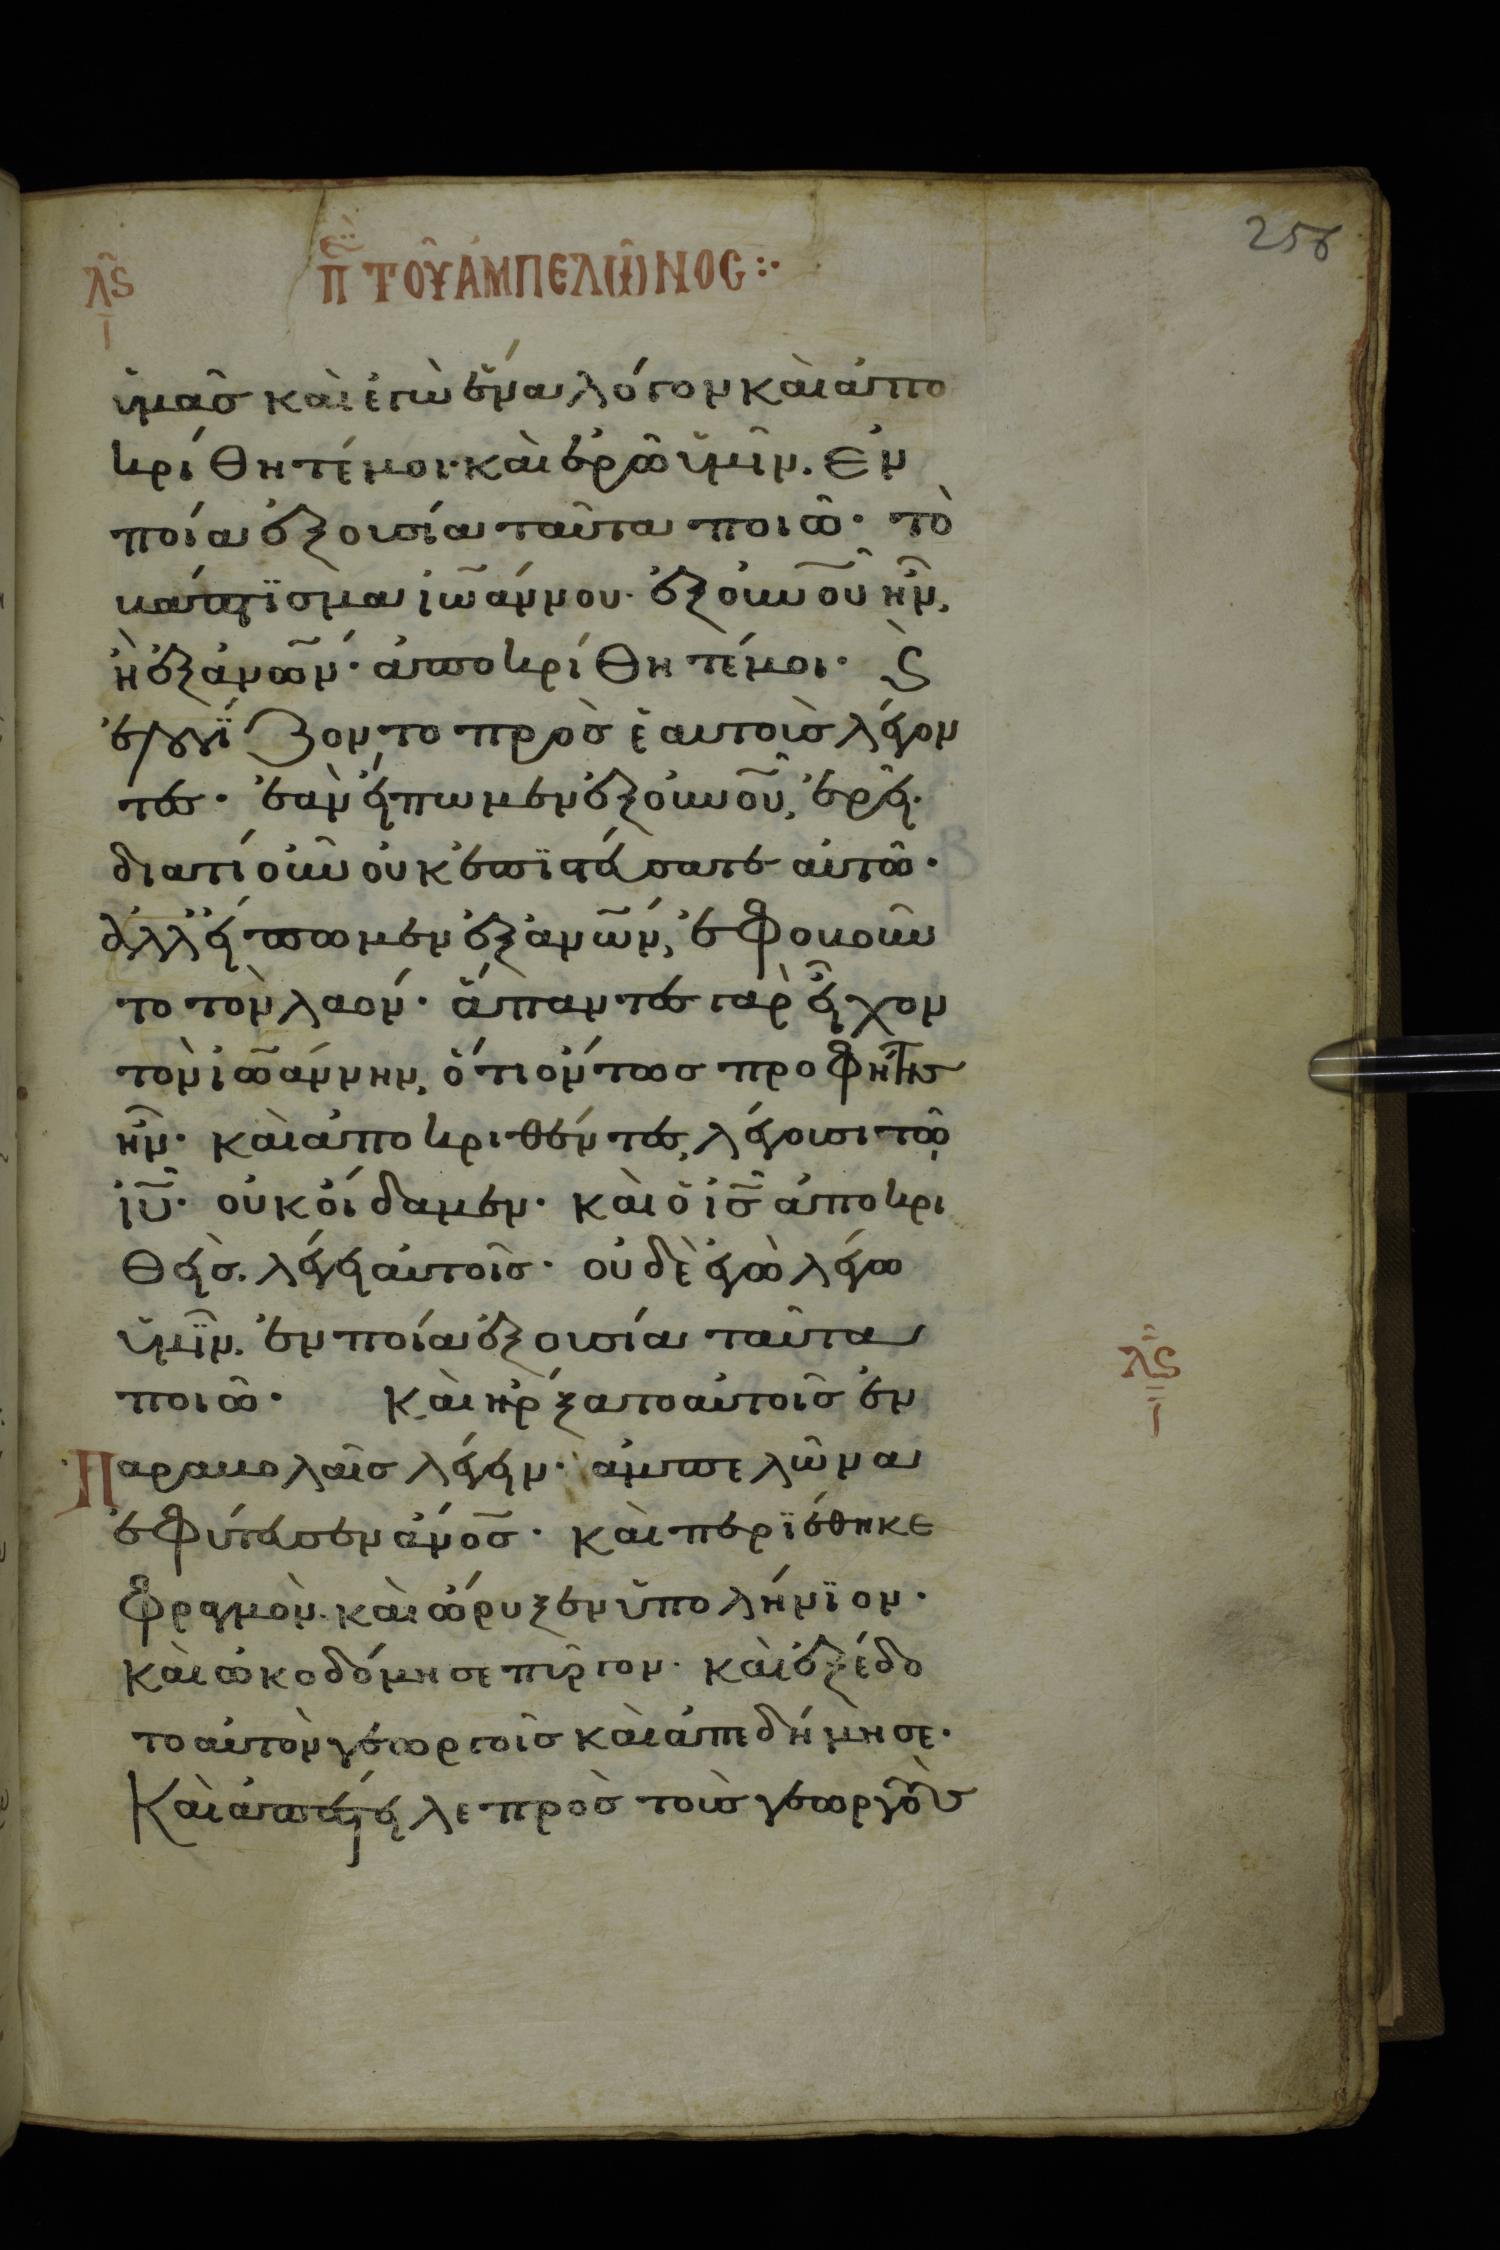 256
λς Π̅ ΤΟΥ ΑΜΠΕΛΩΝΟΣ
ι̅
ὑμᾶς καὶ ἐγὼ ἕνα λόγον καὶ ἀπο
κρίθητέ μοι· καὶ ἐρῶ ὑμῖν. Ἐν
ποία ἐξουσία ταῦτα ποιῶ· τὸ
βάπτισμα ἰωάννου· ἐξ οὐνοῦ ἦν,
ἢ ἐξ ἀνων· ἀποκρίθητέ μοι· ϛ
ἐλογίζοντο πρὸς ἑαυτοὺς λέγον
τες· ἐὰν εἴπωμεν ἐξ οὐνοῦ, ἐρεῖ·
διατί οὖν οὐκ ἐπιστεύσατε αὐτῶ·
ἀλλ εἴπωμεν ἐξ ἀνων, ἐφοβοῦν
το τὸν λαόν· ἅπαντες γὰρ εἶχον
τὸν ἰωάννην, ὅτι ὄντως προφήτης
ἦν· καὶ ἀποκριθέντες, λέγουσι τῶ
ιυ· οὐκ οἴδαμεν· καὶ ὁ ις ἀποκρι
θεὶς. λέγει αὐτοῖς· οὐδὲ ἐγὼ λέγω
ὑμῖν. ἐν ποία ἐξουσία ταῦτα
ποιῶ· Καὶ ἤρξατο αὐτοῖς ἐν λς
Παραβολαῖς λέγειν· ἀμπελῶνα ι̅
ἐφύτευσεν ανος· καὶ περιέθηκε
φραγμὸν. καὶ ὤρυξεν ὑπολήνιον·
καὶ ὠκοδόμησε πῦργον· καὶ ἐξέδο
το αὐτὸν γεωργοῖς καὶ ἀπεδήμησε·
Καὶ ἀπέστειλε πρὸς τοὺς γεωργοὺς